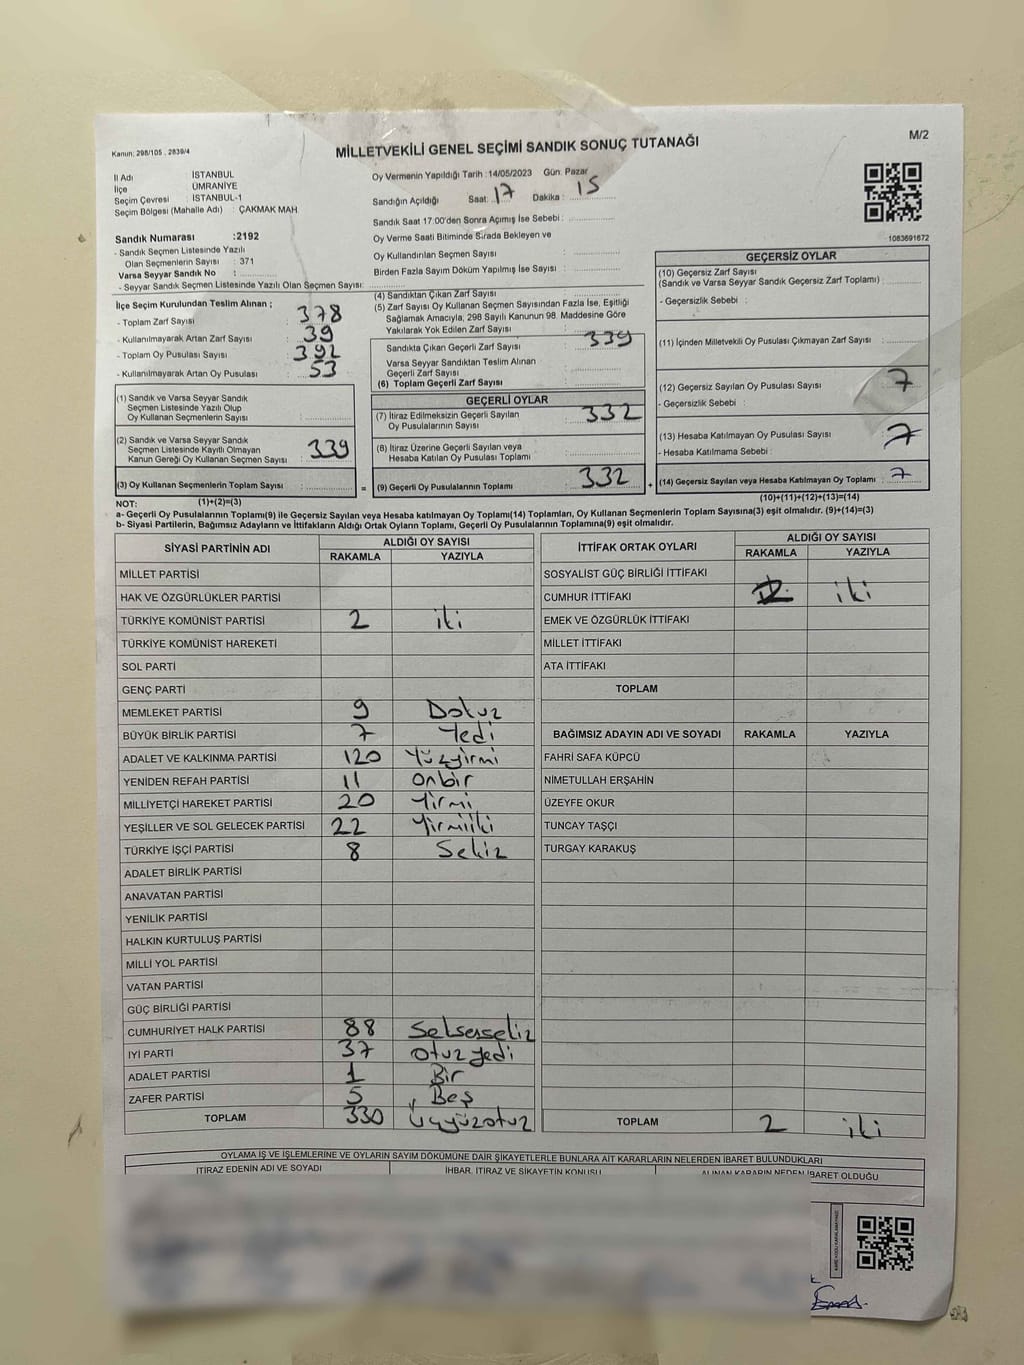 Kanun: 298/105 , 2839/4
MİLLETVEKİLİ GENEL SEÇİMİ SANDIK SONUÇ TUTANAĞI
M/2
İl Adı : İSTANBUL
İlçe : ÜMRANİYE
Seçim Çevresi : İSTANBUL-1
Seçim Bölgesi (Mahalle Adı) : ÇAKMAK MAH.
Sandık Numarası :2192
- Sandık Seçmen Listesinde Yazılı
Olan Seçmenlerin Sayısı : 371
Varsa Seyyar Sandık No :
- Seyyar Sandık Seçmen Listesinde Yazılı Olan Seçmen Sayısı:
Oy Vermenin Yapıldığı Tarih :14/05/2023 Gün. Pazar
Sandığın Açıldığı Saat: 17 Dakika : 15
Sandık Saat 17:00'den Sonra Açılmış İse Sebebi :
Oy Verme Saati Bitiminde Sırada Bekleyen ve
Oy Kullandırılan Seçmen Sayısı :
Birden Fazla Sayım Döküm Yapılmış İse Sayısı :
1083691672
İlçe Seçim Kurulundan Teslim Alınan ;
- Toplam Zarf Sayısı : 378
- Kullanılmayarak Artan Zarf Sayısı : 39
- Toplam Oy Pusulası Sayısı : 392
- Kullanılmayarak Artan Oy Pusulası : 53
(1) Sandık ve Varsa Seyyar Sandık
Seçmen Listesinde Yazılı Olup
Oy Kullanan Seçmenlerin Sayısı :
(2) Sandık ve Varsa Seyyar Sandık
Seçmen Listesinde Kayıtlı Olmayan
Kanun Gereği Oy Kullanan Seçmen Sayısı : 339
(3) Oy Kullanan Seçmenlerin Toplam Sayısı :
(1)+(2)=(3)
(4) Sandıktan Çıkan Zarf Sayısı :
(5) Zarf Sayısı Oy Kullanan Seçmen Sayısından Fazla İse, Eşitliği
Sağlamak Amacıyla, 298 Sayılı Kanunun 98. Maddesine Göre
Yakılarak Yok Edilen Zarf Sayısı :
Sandıkta Çıkan Geçerli Zarf Sayısı : 339
Varsa Seyyar Sandıktan Teslim Alınan
Geçerli Zarf Sayısı :
(6) Toplam Geçerli Zarf Sayısı :
=
GEÇERLİ OYLAR
(7) İtiraz Edilmeksizin Geçerli Sayılan
Oy Pusulalarının Sayısı : 332
(8) İtiraz Üzerine Geçerli Sayılan veya
Hesaba Katılan Oy Pusulası Toplamı :
(9) Geçerli Oy Pusulalarının Toplamı : 332
+
GEÇERSİZ OYLAR
(10) Geçersiz Zarf Sayısı
(Sandık ve Varsa Seyyar Sandık Geçersiz Zarf Toplamı) :
- Geçersizlik Sebebi :
(11) İçinden Milletvekili Oy Pusulası Çıkmayan Zarf Sayısı :
(12) Geçersiz Sayılan Oy Pusulası Sayısı : 7
- Geçersizlik Sebebi :
(13) Hesaba Katılmayan Oy Pusulası Sayısı : 7
- Hesaba Katılmama Sebebi :
(14) Geçersiz Sayılan veya Hesaba Katılmayan Oy Toplamı : 7
(10)+(11)+(12)+(13)=(14)
NOT:
a- Geçerli Oy Pusulalarının Toplamı(9) ile Geçersiz Sayılan veya Hesaba Katılmayan Oy Toplamı(14) Toplamları, Oy Kullanan Seçmenlerin Toplam Sayısına(3) eşit olmalıdır. (9)+(14)=(3)
b- Siyasi Partilerin, Bağımsız Adayların ve İttifakların Aldığı Ortak Oyların Toplamı, Geçerli Oy Pusulalarının Toplamına(9) eşit olmalıdır.
SİYASİ PARTİNİN ADI ALDIĞI OY SAYISI
RAKAMLA YAZIYLA
MİLLET PARTİSİ
HAK VE ÖZGÜRLÜKLER PARTİSİ
TÜRKİYE KOMÜNİST PARTİSİ 2 iki
TÜRKİYE KOMÜNİST HAREKETİ
SOL PARTİ
GENÇ PARTİ
MEMLEKET PARTİSİ 9 Dokuz
BÜYÜK BİRLİK PARTİSİ 7 Yedi
ADALET VE KALKINMA PARTİSİ 120 Yüzyirmi
YENİDEN REFAH PARTİSİ 11 onbir
MİLLİYETÇİ HAREKET PARTİSİ 20 Yirmi
YEŞİLLER VE SOL GELECEK PARTİSİ 22 Yirmiiki
TÜRKİYE İŞÇİ PARTİSİ 8 Sekiz
ADALET BİRLİK PARTİSİ
ANAVATAN PARTİSİ
YENİLİK PARTİSİ
HALKIN KURTULUŞ PARTİSİ
MİLLİ YOL PARTİSİ
VATAN PARTİSİ
GÜÇ BİRLİĞİ PARTİSİ
CUMHURİYET HALK PARTİSİ 88 Seksenseliz
İYİ PARTİ 37 otuzyedi
ADALET PARTİSİ 1 Bir
ZAFER PARTİSİ 5 Beş
TOPLAM 330 üçyüzotuz
İTTİFAK ORTAK OYLARI ALDIĞI OY SAYISI
RAKAMLA YAZIYLA
SOSYALİST GÜÇ BİRLİĞİ İTTİFAKI
CUMHUR İTTİFAKI iki
EMEK VE ÖZGÜRLÜK İTTİFAKI
MİLLET İTTİFAKI
ATA İTTİFAKI
TOPLAM
BAĞIMSIZ ADAYIN ADI VE SOYADI RAKAMLA YAZIYLA
FAHRİ SAFA KÜPCÜ
NİMETULLAH ERŞAHİN
ÜZEYFE OKUR
TUNCAY TAŞÇI
TURGAY KARAKUŞ
TOPLAM 2 iki
OYLAMA İŞ VE İŞLEMLERİNE VE OYLARIN SAYIM DÖKÜMÜNE DAİR ŞİKAYETLERLE BUNLARA AİT KARARLARIN NELERDEN İBARET BULUNDUKLARI
İTİRAZ EDENİN ADI VE SOYADI İHBAR, İTİRAZ VE ŞİKAYETİN KONUSU ALINAN KARARIN NEDEN İBARET OLDUĞU